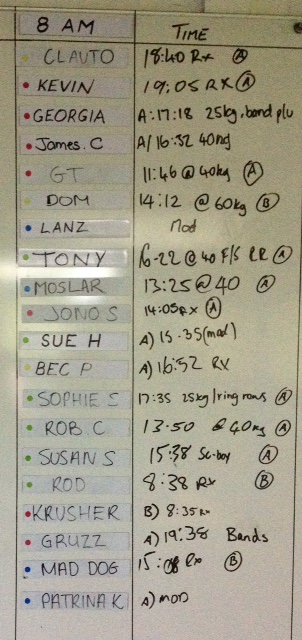 8 AM TIME
CLAUTO 18:40 Rx (A)
KEVIN 19:05 RX (A)
GEORGIA A:17:18 25kg, band plu
James. C A/16:52 40kg
GT 11:46 @ 40kg (A)
DOM 14:12 @ 60kg (B)
LANZ Mod
TONY 16-22 @ 40 F/S RR (A)
MOSLAR 13:25 @ 40 (A)
JONO S 14:05Rx (A)
SUE H A) 15.35(mod)
BEC P A) 16:52 RX
SOPHIE S 17:35 25kg/ring rows (A)
ROB. C 13.50 @ 40kg (A)
SUSAN S 15:38 (A)
ROD 8:38 Rx (B)
KRUSHER B) 8:35Rx
GRUZZ A) 19:38 Bands
MAD DOG 15: Rx (B)
PATRINA K A) MOD